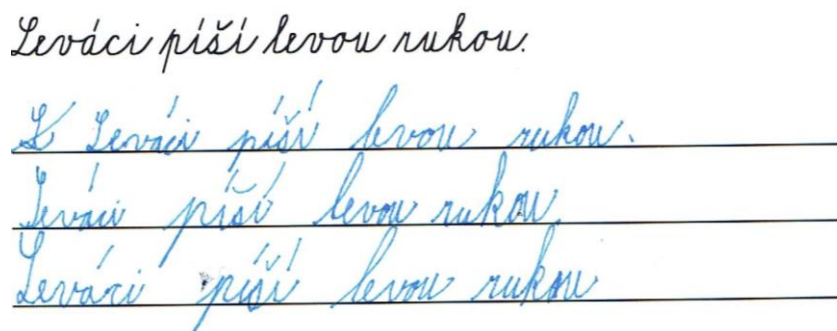 Leváci píší levou rukou.
L Leváci píší levou rukou.
Leváci píší levou rukou.
Leváci píší levou rukou